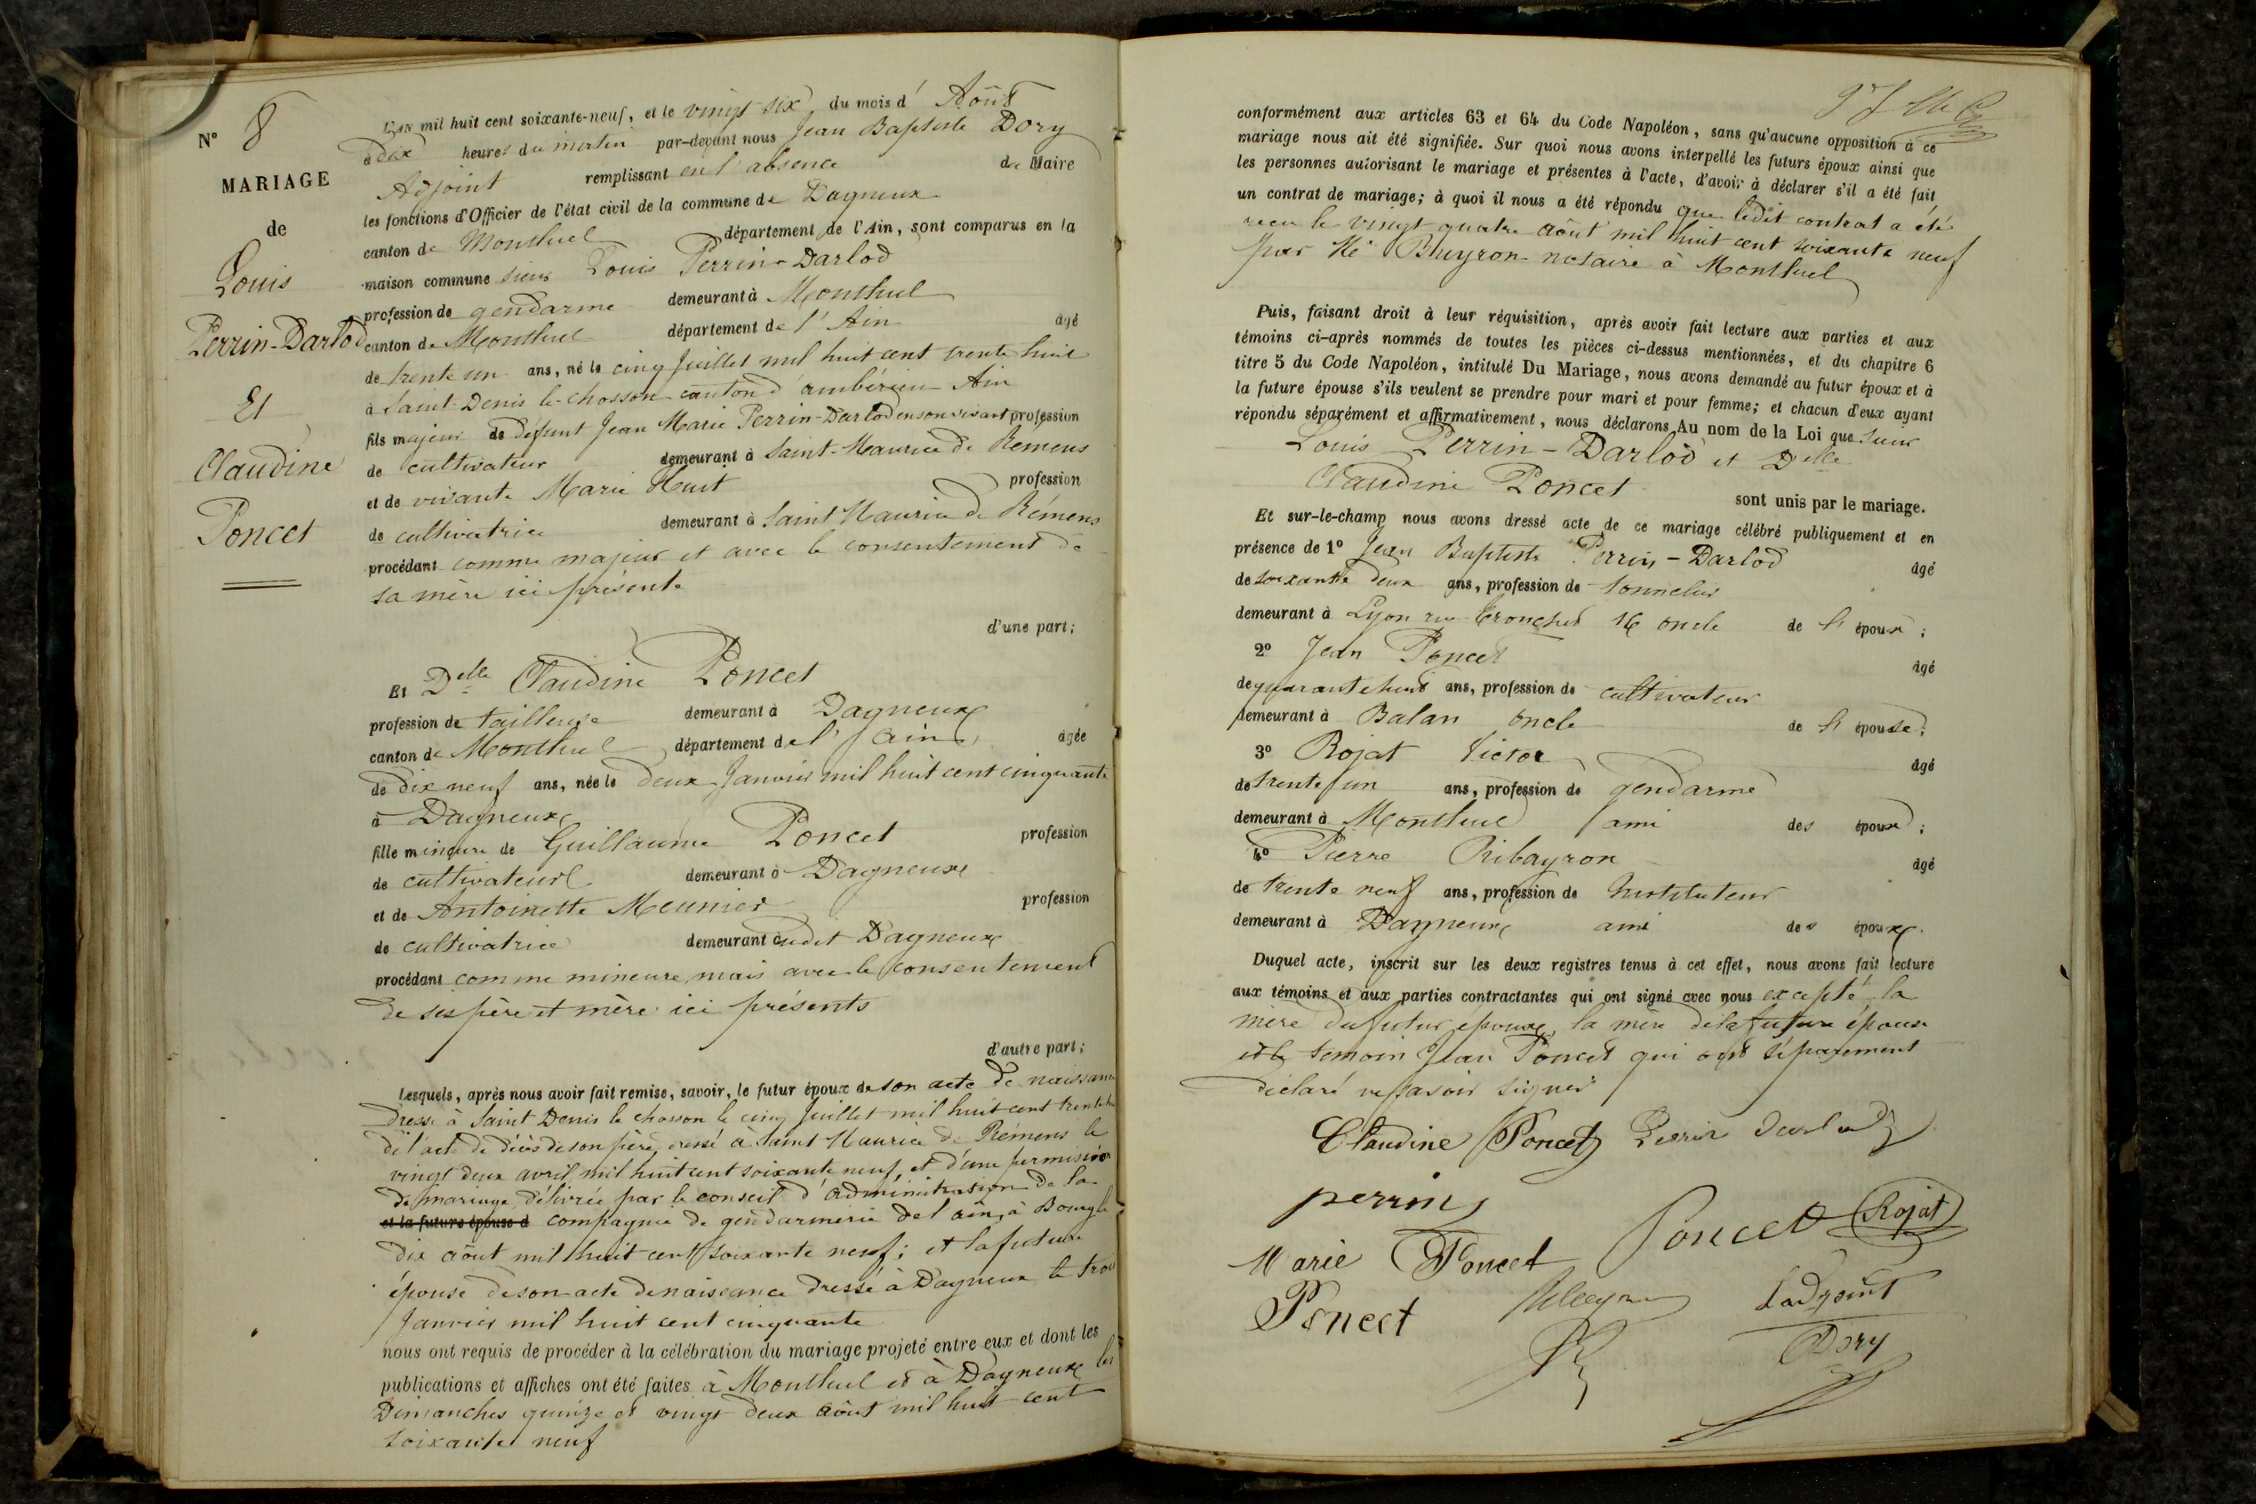 N° 8
MARIAGE
de
Louis
Perrin-Darlod
Et
Claudine
Poncet
L'an mil huit cent soixante-neuf, et le vingt six du mois d' Août
à dix heures du matin par-devant nous Jean Baptiste Dory
Adjoint remplissant en l'absence du Maire
les fonctions d'Officier de l'état civil de la commune de Dagneux
canton de Montluel département de l'Ain, sont comparus en la
maison commune sieur Louis Perrin-Darlod
profession de gendarme demeurant à Montluel
canton de Montluel département de l'Ain âgé
de trente un ans, né le cinq Juillet mil huit cent trente huit
à Saint-Denis le chosson canton d'ambérieu Ain
fils majeur de defunt Jean Marie Perrin-Darlod en son vivant profession
de cultivateur demeurant à Saint-Maurice de Remens
et de vivante Marie Huit profession
de cultivatrice demeurant à Saint Maurice de Rémens
procédant comme majeur et avec le consentement de
sa mère ici présente
d'une part;
Et Delle Claudine Poncet
profession de tailleuse demeurant à Dagneux
canton de Montluel département de l'Ain, âgée
de dix neuf ans, née le deux Janvier mil huit cent cinquante
à Dagneux
fille mineure de Guillaume Poncet profession
de cultivateur demeurant à Dagneux
et de Antoinette Meunier profession
de cultivatrice demeurant audit Dagneux
procédant comme mineure mais avec le consentement
de ses père et mère ici présents
d'autre part;
Lesquels, après nous avoir fait remise, savoir, le futur époux de son acte de naissance
dressé à Saint Denis le chosson le cinq Juillet mil huit cent trente huit
de l'acte de décès de son père dressé à Saint Maurice de Rémens le
vingt deux avril mil huit cent soixante neuf, et d'une permission
de mariage délivrée par le conseil d'administration de la
et la future épouse d compagnie de gendarmerie de l'ain, à Bourg le
dix août mil huit cent soixante neuf; et la future
épouse de son acte de naissance dressé à Dagneux le trois
Janvier mil huit cent cinquante
nous ont requis de procéder à la célébration du mariage projeté entre eux et dont les
publications et affiches ont été faites à Montluel et à Dagneux les
Dimanches quinze et vingt deux août mil huit cent
soixante neuf
conformément aux articles 63 et 64 du Code Napoléon, sans qu'aucune opposition à ce
mariage nous ait été signifiée. Sur quoi nous avons interpellé les futurs époux ainsi que
les personnes autorisant le mariage et présentes à l'acte, d'avoir à déclarer s'il a été fait
un contrat de mariage; à quoi il nous a été répondu que ledit contrat a été
reçu le vingt quatre août mil huit cent soixante neuf
par Me Bruyron notaire à Montluel
Puis, faisant droit à leur réquisition, après avoir fait lecture aux parties et aux
témoins ci-après nommés de toutes les pièces ci-dessus mentionnées, et du chapitre 6
titre 5 du Code Napoléon, intitulé Du Mariage, nous avons demandé au futur époux et à
la future épouse s'ils veulent se prendre pour mari et pour femme; et chacun d'eux ayant
répondu séparément et affirmativement, nous déclarons Au nom de la Loi que sieur
Louis Perrin-Darlod et Delle
Claudine Poncet sont unis par le mariage.
Et sur-le-champ nous avons dressé acte de ce mariage célébré publiquement et en
présence de 1° Jean Baptiste Perrin-Darlod âgé
de soixante deux ans, profession de tonnelier
demeurant à Lyon rue tronchet 16 oncle de l' époux;
2° Jean Poncet âgé
de quarante huit ans, profession de cultivateur
demeurant à Balan oncle de l' épouse;
3° Rojat Victor âgé
de trente un ans, profession de gendarme
demeurant à Montluel ami des époux;
4° Pierre Ribayron âgé
de trente neuf ans, profession de Instituteur
demeurant à Dagneux ami des époux.
Duquel acte, inscrit sur les deux registres tenus à cet effet, nous avons fait lecture
aux témoins et aux parties contractantes qui ont signé avec nous excepté la
mère du futur époux, la mère de la future épouse
et le témoin Jean Poncet qui ont séparément
déclaré ne savoir signer
Claudine Poncet Perrin Darlod
perrin
Poncet Rojat
Marie Poncet
Poncet
L'adjoint
Dory